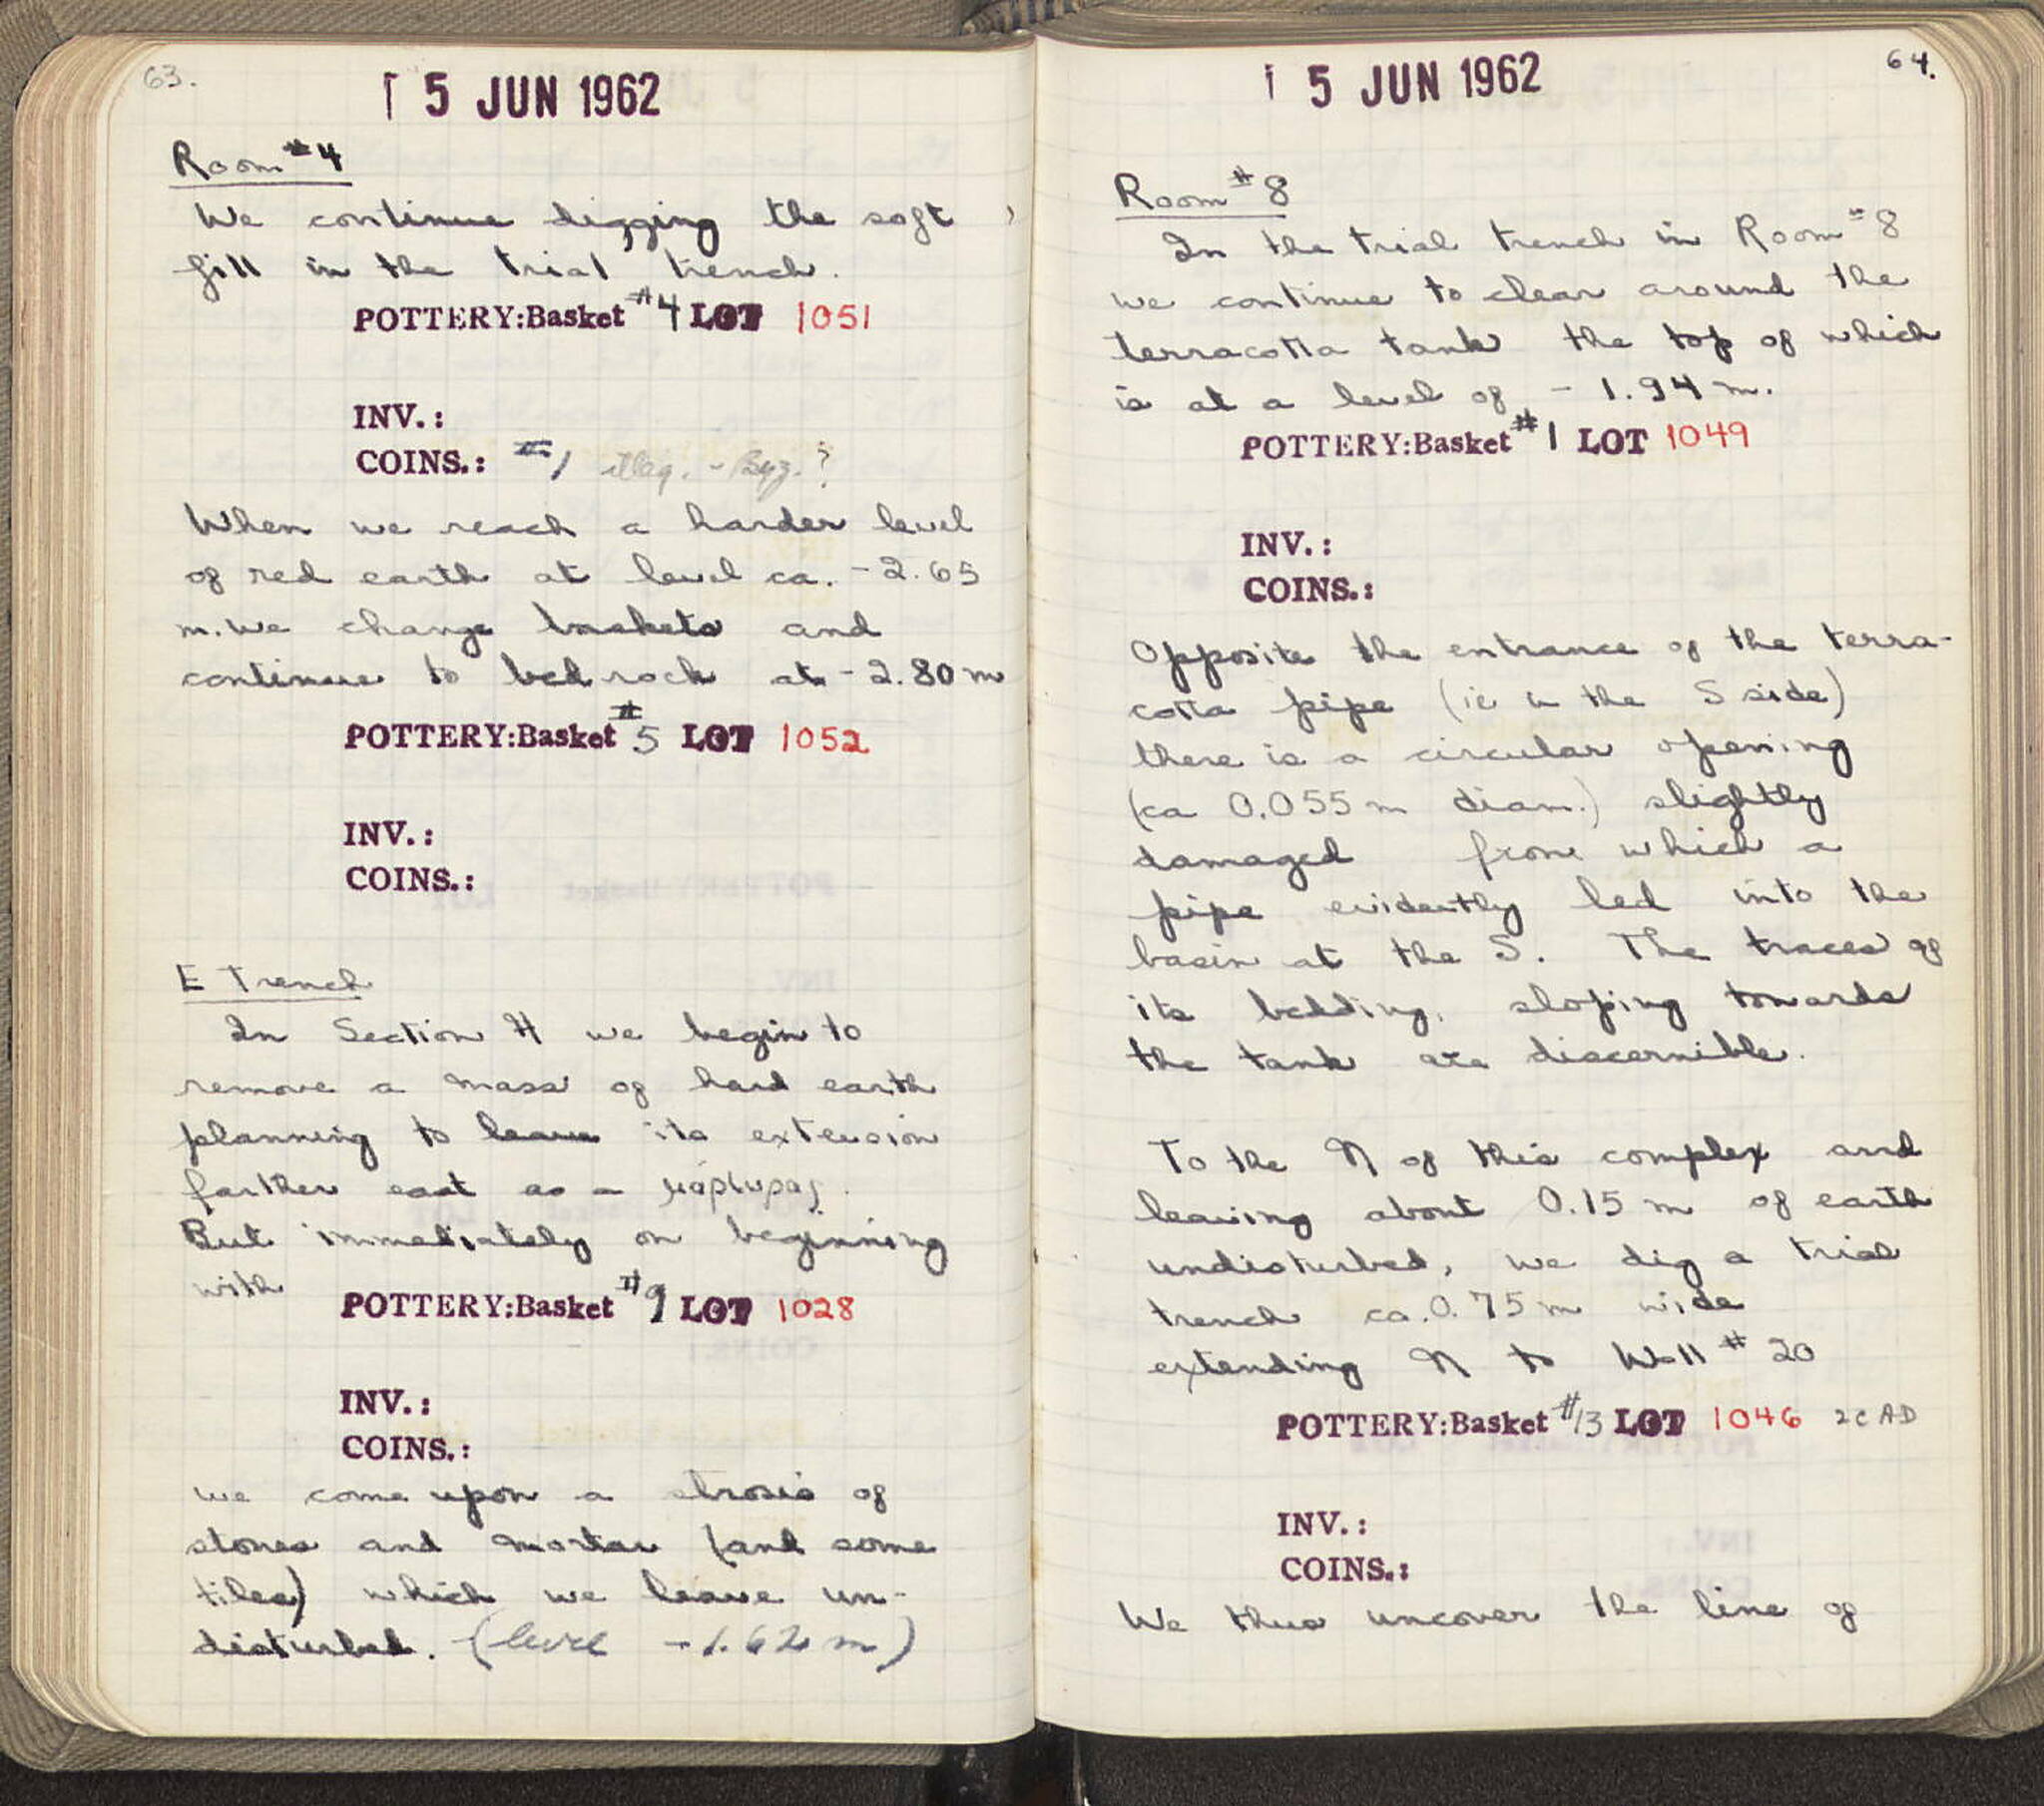 63.
15 JUN 1962
Room #4
We continue digging the soft
fill in the trial trench.
POTTERY:Basket #4 LOT 1051
INV.:
COINS.: #1 illeg. - Byz.?
When we reach a harder level
of red earth at level ca. -2.65
m. we change baskets and
continue to bedrock at -2.80 m
POTTERY:Basket #5 LOT 1052
INV.:
COINS.:
E Trench
In Section H we begin to
remove a mass of hard earth
planning to leave its extension
farther east as a μάρτυρας.
But immediately on beginning
with
POTTERY:Basket #9 LOT 1028
INV.:
COINS.:
we come upon a strosis of
stones and mortar (and some
tiles) which we leave un-
disturbed. (level -1.62 m)
64.
15 JUN 1962
Room #8
In the trial trench in Room #8
we continue to clear around the
terracotta tank the top of which
is at a level of - 1.94 m.
POTTERY:Basket #1 LOT 1049
INV.:
COINS.:
Opposite the entrance of the terra-
cotta pipe (ie in the S side)
there is a circular opening
(ca 0.055 m diam.) slightly
damaged from which a
pipe evidently led into the
basin at the S. The traces of
its bedding, sloping towards
the tank are discernible.
To the N of this complex and
leaving about 0.15 m of earth
undisturbed, we dig a trial
trench ca. 0.75 m wide
extending N to Wall #20
POTTERY:Basket #13 LOT 1046 2C AD
INV.:
COINS.:
We thus uncover the line of